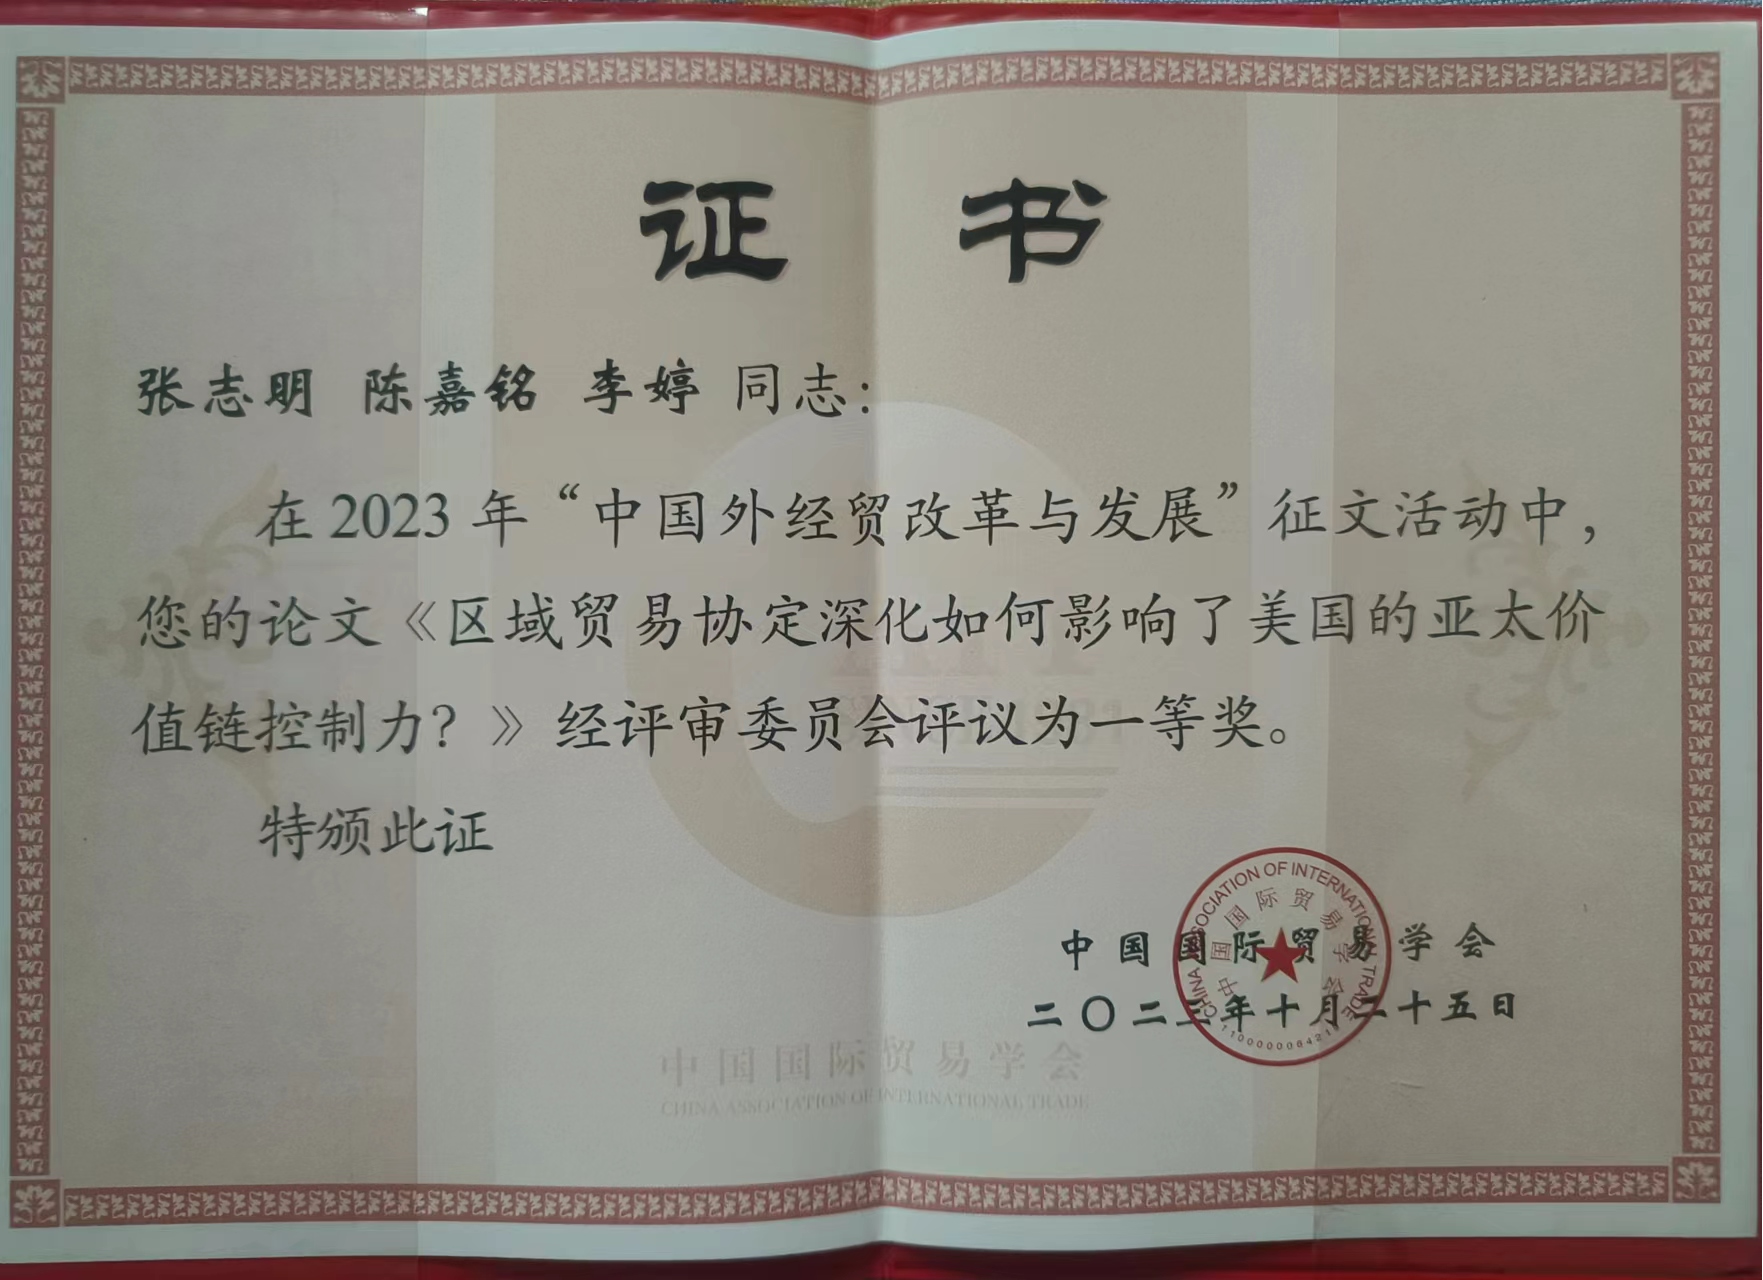 证书
张志明 陈嘉铭 李婷 同志：
在2023年“中国外经贸改革与发展”征文活动中，
您的论文《区域贸易协定深化如何影响了美国的亚太价
值链控制力？》经评审委员会评议为一等奖。
特颁此证
中国国际贸易学会
二〇二三年十月二十五日
CHINA ASSOCIATION OF INTERNATIONAL TRADE
中国国际贸易学会
中国国际贸易学会
CHINA ASSOCIATION OF INTERNATIONAL TRADE